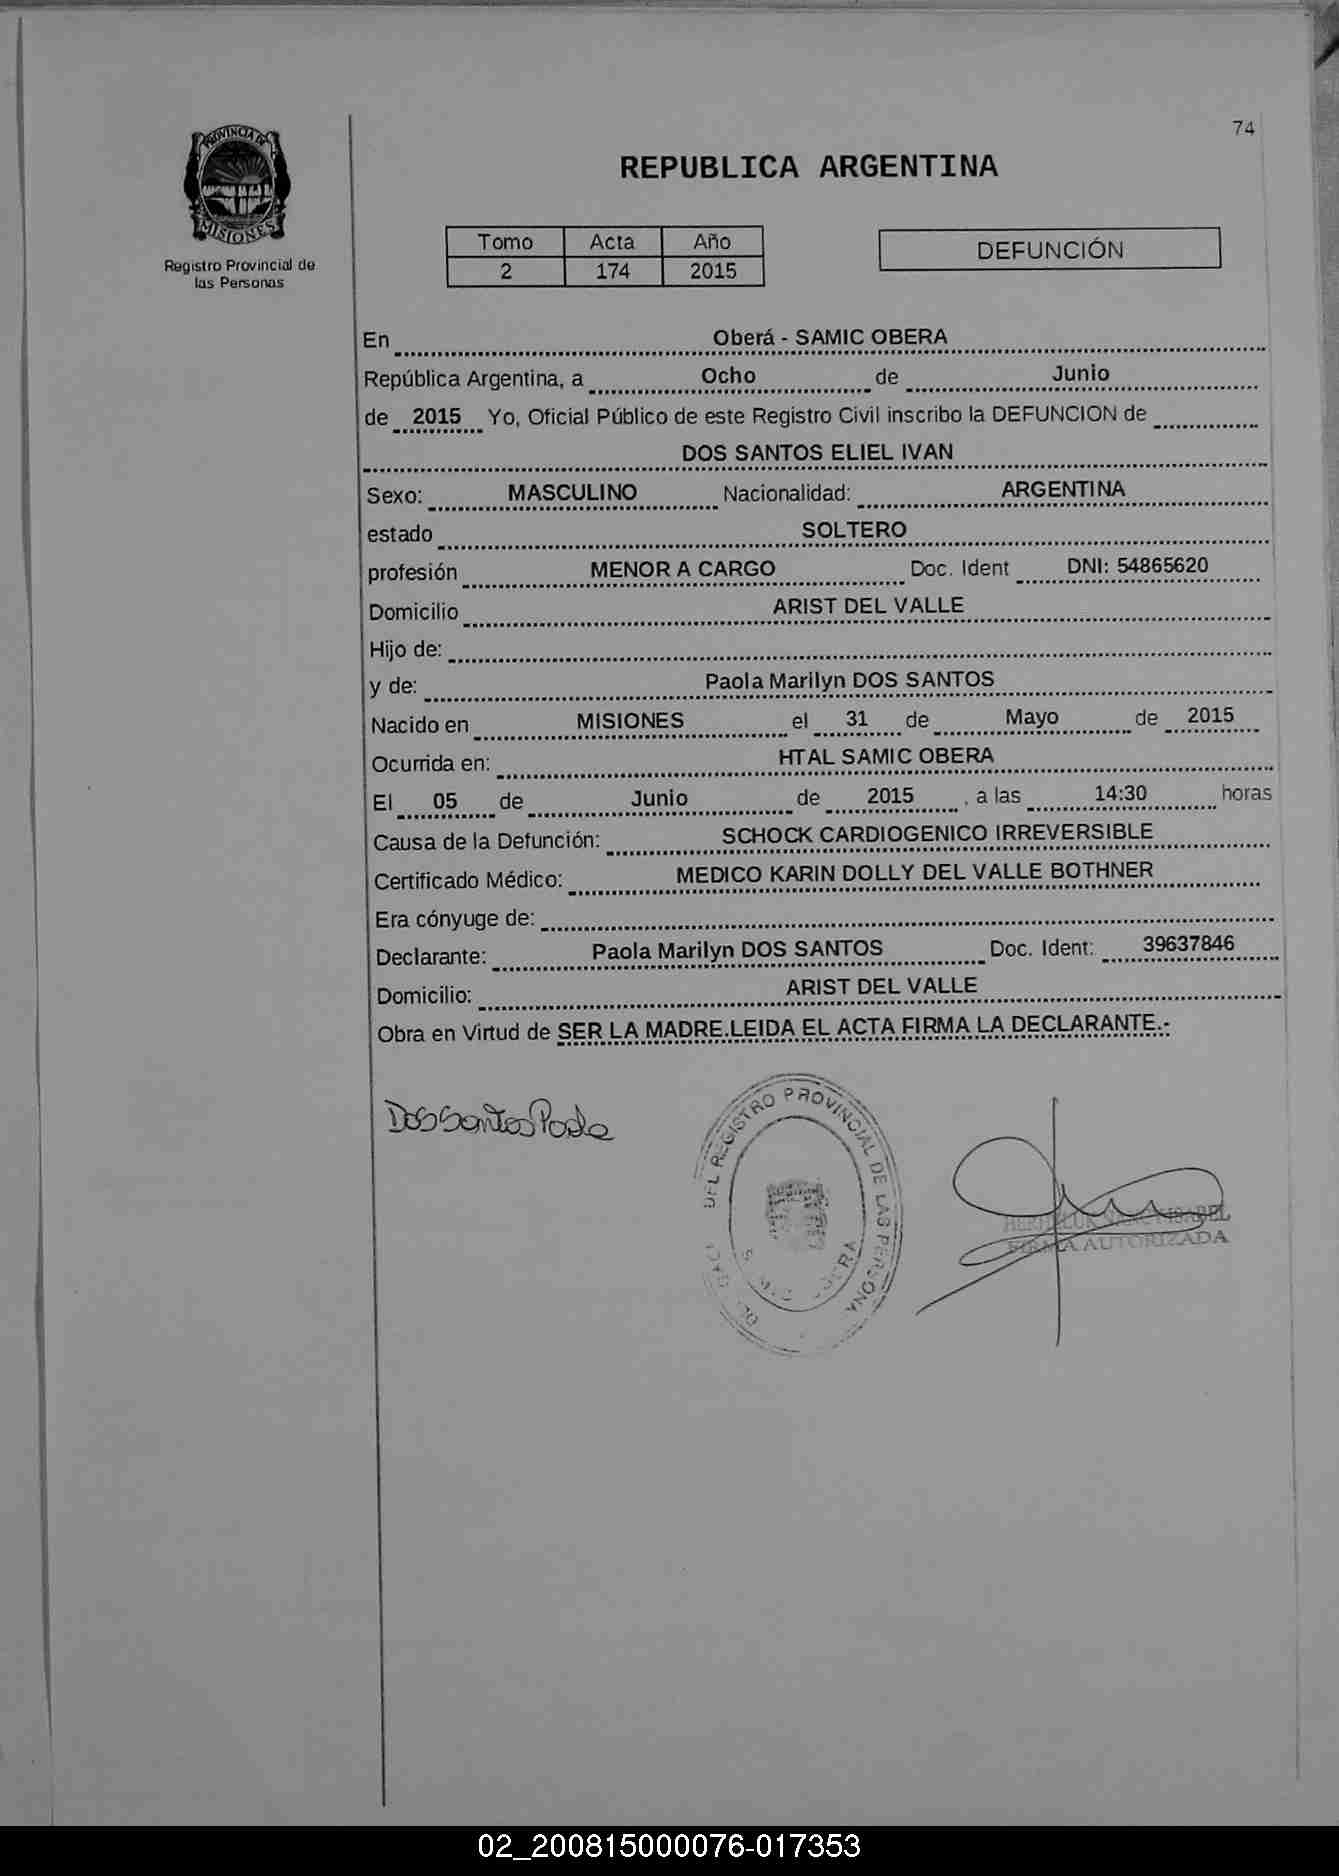 74
PROVINCIA DE
MISIONES
Registro Provincial de
las Personas
REPUBLICA ARGENTINA
Tomo Acta Año
2 174 2015
DEFUNCIÓN
En Oberá - SAMIC OBERA
República Argentina, a Ocho de Junio
de 2015 Yo, Oficial Público de este Registro Civil inscribo la DEFUNCION de
DOS SANTOS ELIEL IVAN
Sexo: MASCULINO Nacionalidad: ARGENTINA
estado SOLTERO
profesión MENOR A CARGO Doc. Ident DNI: 54865620
Domicilio ARIST DEL VALLE
Hijo de:
y de: Paola Marilyn DOS SANTOS
Nacido en MISIONES el 31 de Mayo de 2015
Ocurrida en: HTAL SAMIC OBERA
El 05 de Junio de 2015, a las 14:30 horas
Causa de la Defunción: SCHOCK CARDIOGENICO IRREVERSIBLE
Certificado Médico: MEDICO KARIN DOLLY DEL VALLE BOTHNER
Era cónyuge de:
Declarante: Paola Marilyn DOS SANTOS Doc. Ident: 39637846
Domicilio: ARIST DEL VALLE
Obra en Virtud de SER LA MADRE.LEIDA EL ACTA FIRMA LA DECLARANTE.-
Dos Santos Paola
DEL REGISTRO PROVINCIAL DE LAS PERSONA
ISABEL
FIRMA AUTORIZADA
02_200815000076-017353